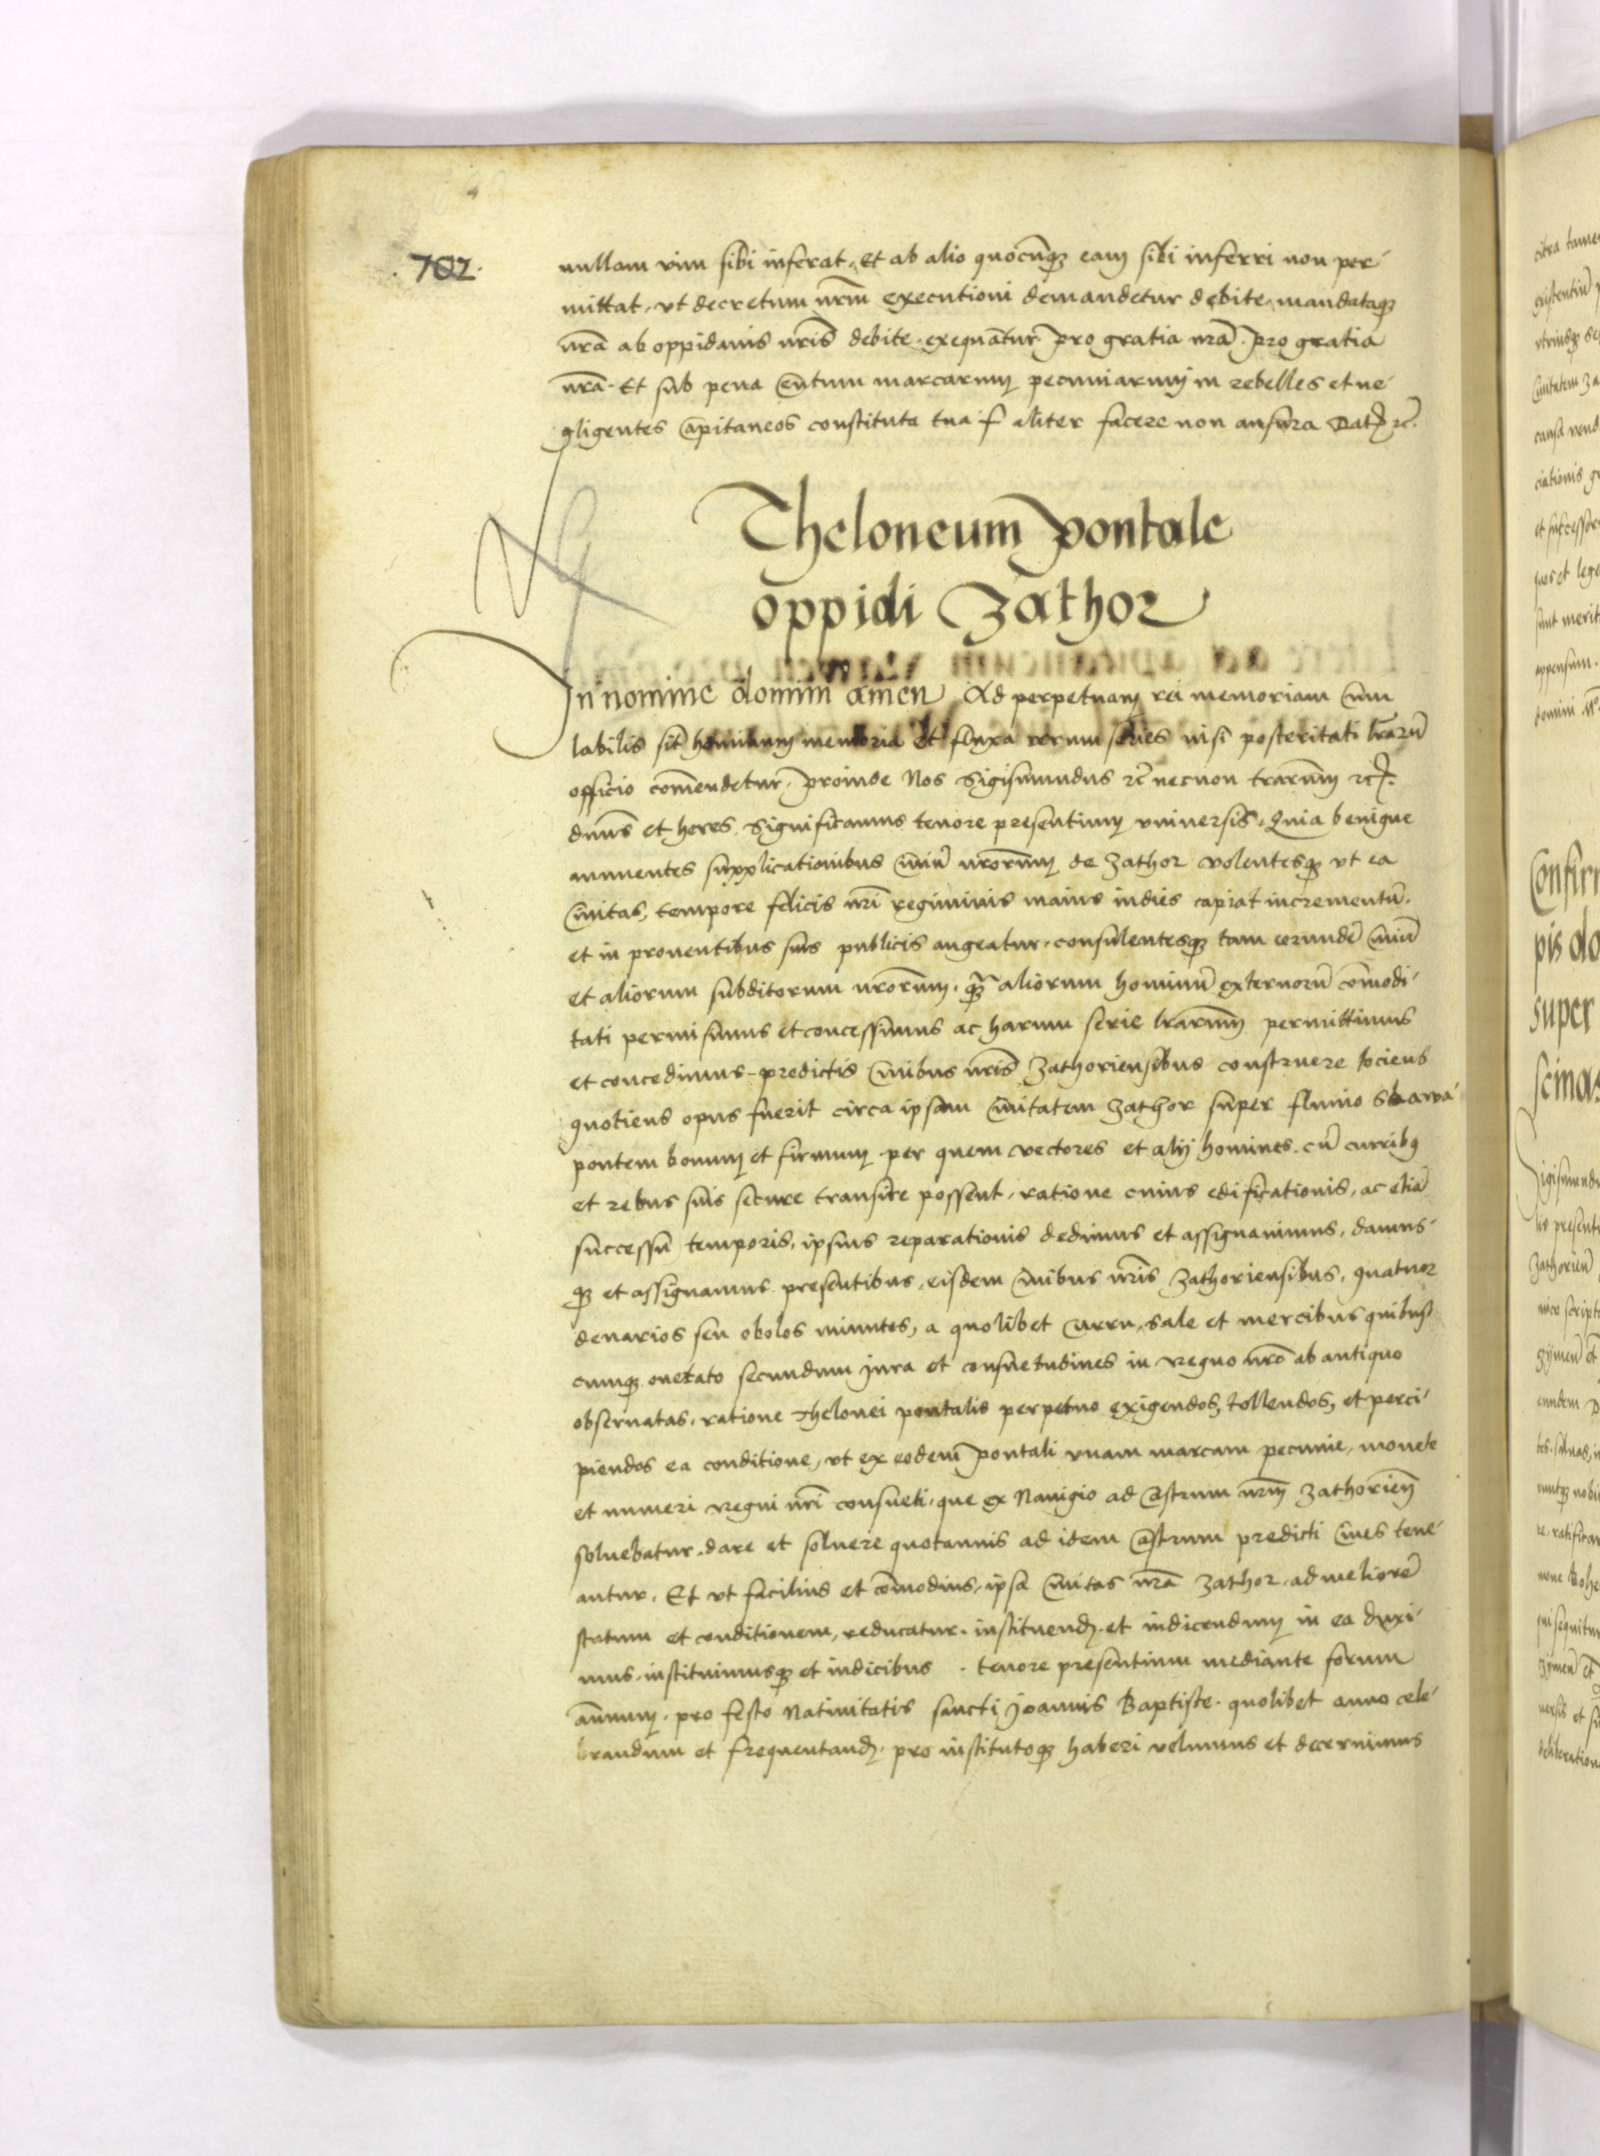 702.
nullam vim sibi inferat, Et ab alio quocūqꝫ eam sibi inferri non per-
mittat, vt decretum nr̄m executioni demandetur debite, mandataqꝫ
nr̄a ab oppidanis nr̄is debite exequāntur pro gratia nr̄a. pro gratia
nr̄a. Et sub pena centum marcarum pecuniarum in rebelles et ne-
gligentes capitaneos constituta tua f aliter facere non ansura Dat̄ ꝛc̄.
Theloneum pontale
oppidi Zathor
In nomine domini amen Ad perpetuam rei memoriam Cum
labilis sit hominum memoria et fluxa rerum series nisi posteritati l̄rarū
officio com̄endetur, proinde Nos Sigismundus ꝛc̄ necnon trarum̄ ꝛc̄.
dn̄us et heres. Significamus tenore presentium vniversis, Quia benigne
annuentes supplicationibus Ciuiū nr̄orum de Zathor volentesqꝫ vt ea
Ciuitas, tempore felicis nr̄i regiminis maius indies capiat incrementū.
et in prouentibus suis publicis augeatur, consulentesqꝫ tam eorundē Ciuiū
et aliorum subditorum nr̄orum, qꝫ aliorum hominū externorū com̄odi-
tati permisimus et concessimus ac harum serie l̄rarum permittimus
et concedimus predictis Ciuibus nr̄is Zathoriensibus construere tociens
quotiens opus fuerit circa ipsam Ciuitatem Zathor super fluuio Skawa
pontem bonum et firmum per quem vectores et alij homines cū curribꝫ
et rebus suis secure transire possent, ratione cuius edificationis, ac etiā
successū temporis, ipsius reparationis dedimus et assignauimus, damus-
qꝫ et assignamus presentibus, eisdem Ciuibus nr̄is Zathoriensibus, quatuor
denarios seu obolos minutes, a quolibet curru, sale et mercibus quibus-
cumqꝫ onerato secundum jura et consuetudines in regno nr̄o ab antiquo
obseruatas, ratione Thelonei pontalis perpetuo exigendos, tollendos, et perci-
piendos ea conditione, vt ex eodem pontali vnam marcam pecunie, monete
et numeri regni nr̄i consueti, que ex Nauigio ad Castrum nr̄m Zathorien̄
soluebatur, dare et soluere quotannis ad idem Castrum predicti Ciues tene-
antur. Et vt facilius et com̄odius, ipsa Ciuitas nr̄a Zathor, ad meliorē
statum et conditionem, reducatur, instituend̄ et indicendum in ea duxi-
mus, instituimusqꝫ et indicibus . tenore presentium mediante forum
an̄num, pro festo Natiuitatis sancti Joannis Baptiste, quolibet anno cele-
brandum et frequentand̄, pro institutoqꝫ haberi volumus et decernimus